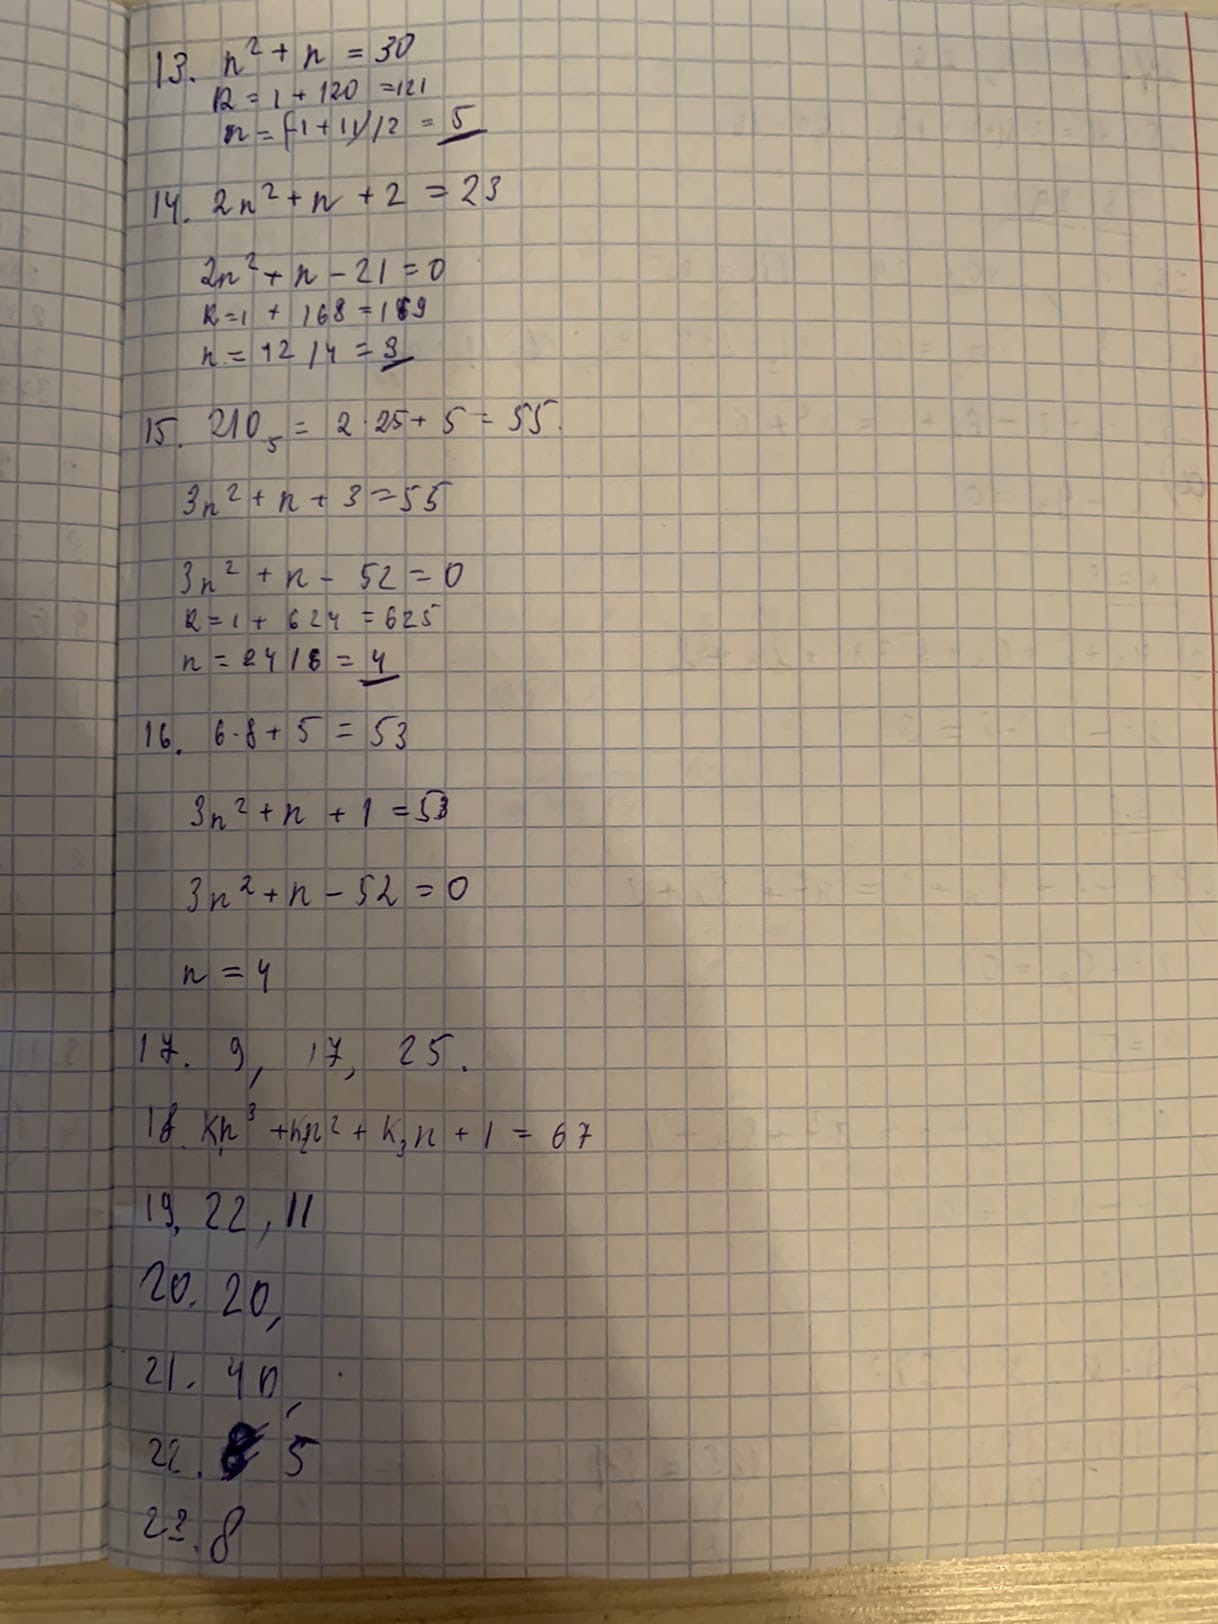 13. n² + n = 30
D = 1 + 120 = 121
n = (-1 + 11)/2 = 5
14. 2n² + n + 2 = 23
2n² + n - 21 = 0
D = 1 + 168 = 169
n = 12/4 = 3
15. 210₅ = 2·25 + 5 = 55.
3n² + n + 3 = 55
3n² + n - 52 = 0
D = 1 + 624 = 625
n = 24/6 = 4
16. 6·8 + 5 = 53
3n² + n + 1 = 53
3n² + n - 52 = 0
n = 4
17. 9, 17, 25.
18. k₁n³ + k₂n² + k₃n + 1 = 67
19. 22, 11
20. 20,
21. 40,
22. 5
23. 8